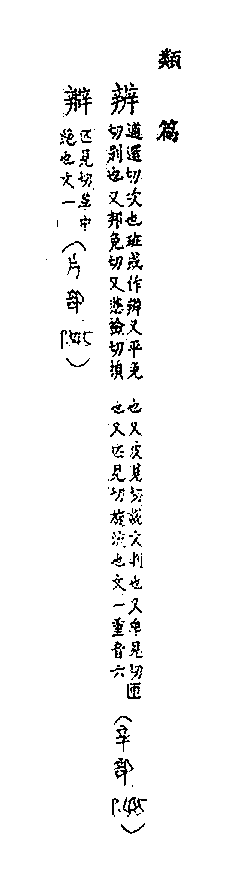 類篇
辨
逋還切次也班或作辨又平免
切別也又邦免切又悲檢切損
也又皮莧切說文判也又卑見切匣
也又匹見切旋流也文一重音六
(辛部)
匹見切革中
絕也文一
(片部)